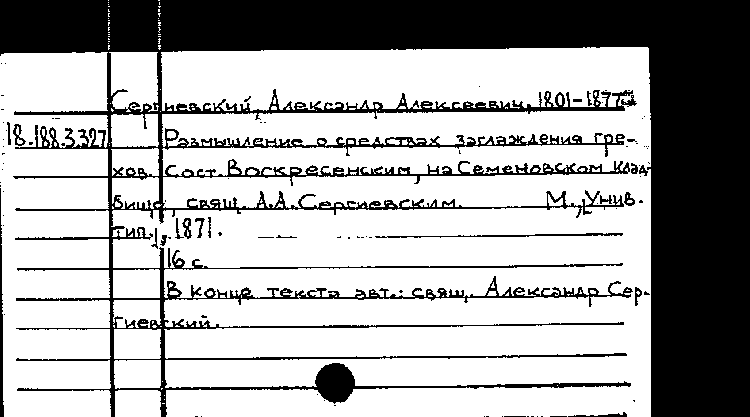 Сергиевский, Александр Алексеевич, 1801-1877
18.188.3.327 Размышление о средствах заглаждения гре-
хов. Сост. Воскресенским, на Семеновском клад-
бище, свящ. А.А.Сергиевским. М., Унив.
тип., 1871.
16 с.
В конце текста авт.: свящ. Александр Сер-
гиевский.